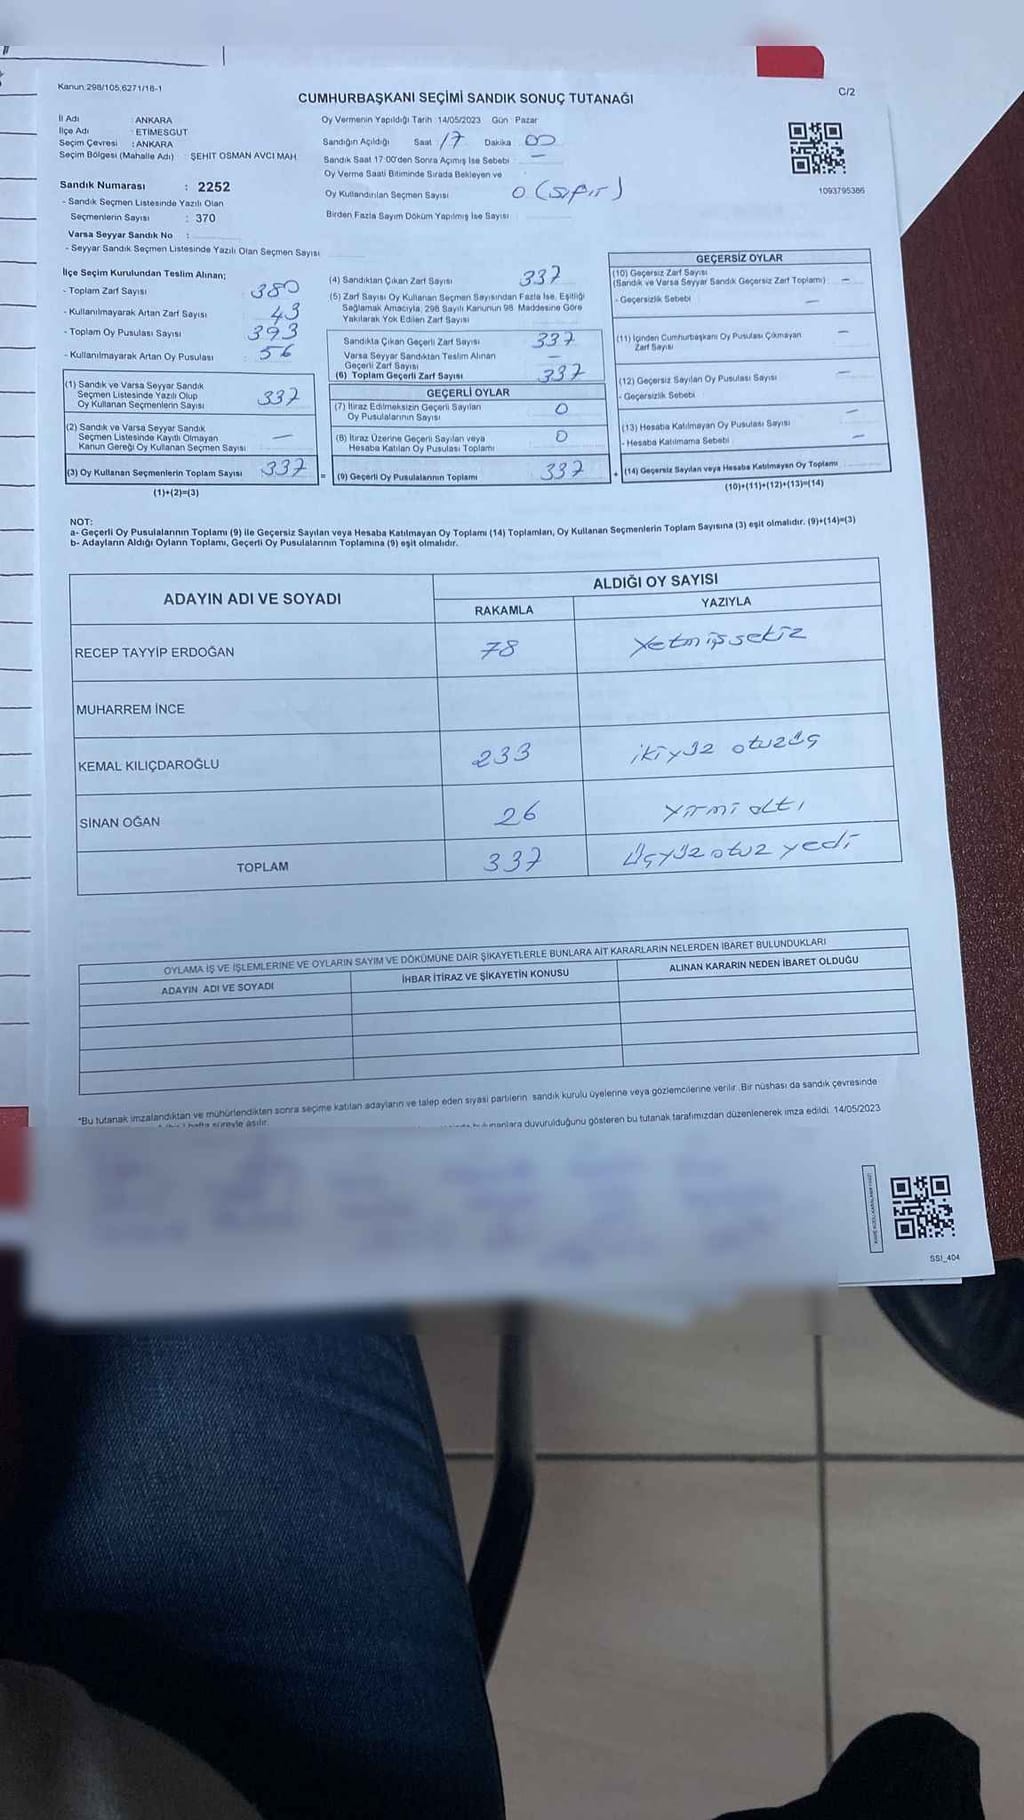 Kanun 298/105,6271/16-1
C/2
CUMHURBAŞKANI SEÇİMİ SANDIK SONUÇ TUTANAĞI
İl Adı : ANKARA
İlçe Adı : ETİMESGUT
Seçim Çevresi : ANKARA
Seçim Bölgesi (Mahalle Adı) ŞEHİT OSMAN AVCI MAH.
Sandık Numarası : 2252
- Sandık Seçmen Listesinde Yazılı Olan
Seçmenlerin Sayısı : 370
Varsa Seyyar Sandık No :
- Seyyar Sandık Seçmen Listesinde Yazılı Olan Seçmen Sayısı
Oy Vermenin Yapıldığı Tarih 14/05/2023 Gün Pazar
Sandığın Açıldığı Saat 17 Dakika 00
Sandık Saat 17:00'den Sonra Açımış İse Sebebi —
Oy Verme Saati Bitiminde Sırada Bekleyen ve
Oy Kullandırılan Seçmen Sayısı 0 (sıfır)
Birden Fazla Sayım Döküm Yapılmış İse Sayısı
1093795386
İlçe Seçim Kurulundan Teslim Alınan;
- Toplam Zarf Sayısı : 380
- Kullanılmayarak Artan Zarf Sayısı : 43
- Toplam Oy Pusulası Sayısı : 393
- Kullanılmayarak Artan Oy Pusulası : 56
(1) Sandık ve Varsa Seyyar Sandık
Seçmen Listesinde Yazılı Olup
Oy Kullanan Seçmenlerin Sayısı 337
(2) Sandık ve Varsa Seyyar Sandık
Seçmen Listesinde Kayıtlı Olmayan
Kanun Gereği Oy Kullanan Seçmen Sayısı —
(3) Oy Kullanan Seçmenlerin Toplam Sayısı 337
(1)+(2)=(3)
=
(4) Sandıktan Çıkan Zarf Sayısı 337
(5) Zarf Sayısı Oy Kullanan Seçmen Sayısından Fazla İse, Eşitliği
Sağlamak Amacıyla, 298 Sayılı Kanunun 98. Maddesine Göre
Yakılarak Yok Edilen Zarf Sayısı
Sandıkta Çıkan Geçerli Zarf Sayısı 337
Varsa Seyyar Sandıktan Teslim Alınan
Geçerli Zarf Sayısı —
(6) Toplam Geçerli Zarf Sayısı 337
GEÇERLİ OYLAR
(7) İtiraz Edilmeksizin Geçerli Sayılan
Oy Pusulalarının Sayısı 0
(8) İtiraz Üzerine Geçerli Sayılan veya
Hesaba Katılan Oy Pusulası Toplamı 0
(9) Geçerli Oy Pusulalarının Toplamı 337
+
GEÇERSİZ OYLAR
(10) Geçersiz Zarf Sayısı
(Sandık ve Varsa Seyyar Sandık Geçersiz Zarf Toplamı) —
- Geçersizlik Sebebi —
(11) İçinden Cumhurbaşkanı Oy Pusulası Çıkmayan
Zarf Sayısı —
(12) Geçersiz Sayılan Oy Pusulası Sayısı —
- Geçersizlik Sebebi
(13) Hesaba Katılmayan Oy Pusulası Sayısı —
- Hesaba Katılmama Sebebi —
(14) Geçersiz Sayılan veya Hesaba Katılmayan Oy Toplamı
(10)+(11)+(12)+(13)=(14)
NOT:
a- Geçerli Oy Pusulalarının Toplamı (9) ile Geçersiz Sayılan veya Hesaba Katılmayan Oy Toplamı (14) Toplamları, Oy Kullanan Seçmenlerin Toplam Sayısına (3) eşit olmalıdır. (9)+(14)=(3)
b- Adayların Aldığı Oyların Toplamı, Geçerli Oy Pusulalarının Toplamına (9) eşit olmalıdır.
ADAYIN ADI VE SOYADI
ALDIĞI OY SAYISI
RAKAMLA YAZIYLA
RECEP TAYYİP ERDOĞAN 78 Yetmişsekiz
MUHARREM İNCE
KEMAL KILIÇDAROĞLU 233 ikiyüz otuzüç
SİNAN OĞAN 26 Yirmi altı
TOPLAM 337 Üçyüz otuz yedi
OYLAMA İŞ VE İŞLEMLERİNE VE OYLARIN SAYIM VE DÖKÜMÜNE DAİR ŞİKAYETLERLE BUNLARA AİT KARARLARIN NELERDEN İBARET BULUNDUKLARI
ADAYIN ADI VE SOYADI İHBAR İTİRAZ VE ŞİKAYETİN KONUSU ALINAN KARARIN NEDEN İBARET OLDUĞU
*Bu tutanak imzalandıktan ve mühürlendikten sonra seçime katılan adayların ve talep eden siyasi partilerin sandık kurulu üyelerine veya gözlemcilerine verilir. Bir nüshası da sandık çevresinde
hafta süreyle asılır.
duyurulduğunu gösteren bu tutanak tarafımızdan düzenlenerek imza edildi. 14/05/2023
SSI_404